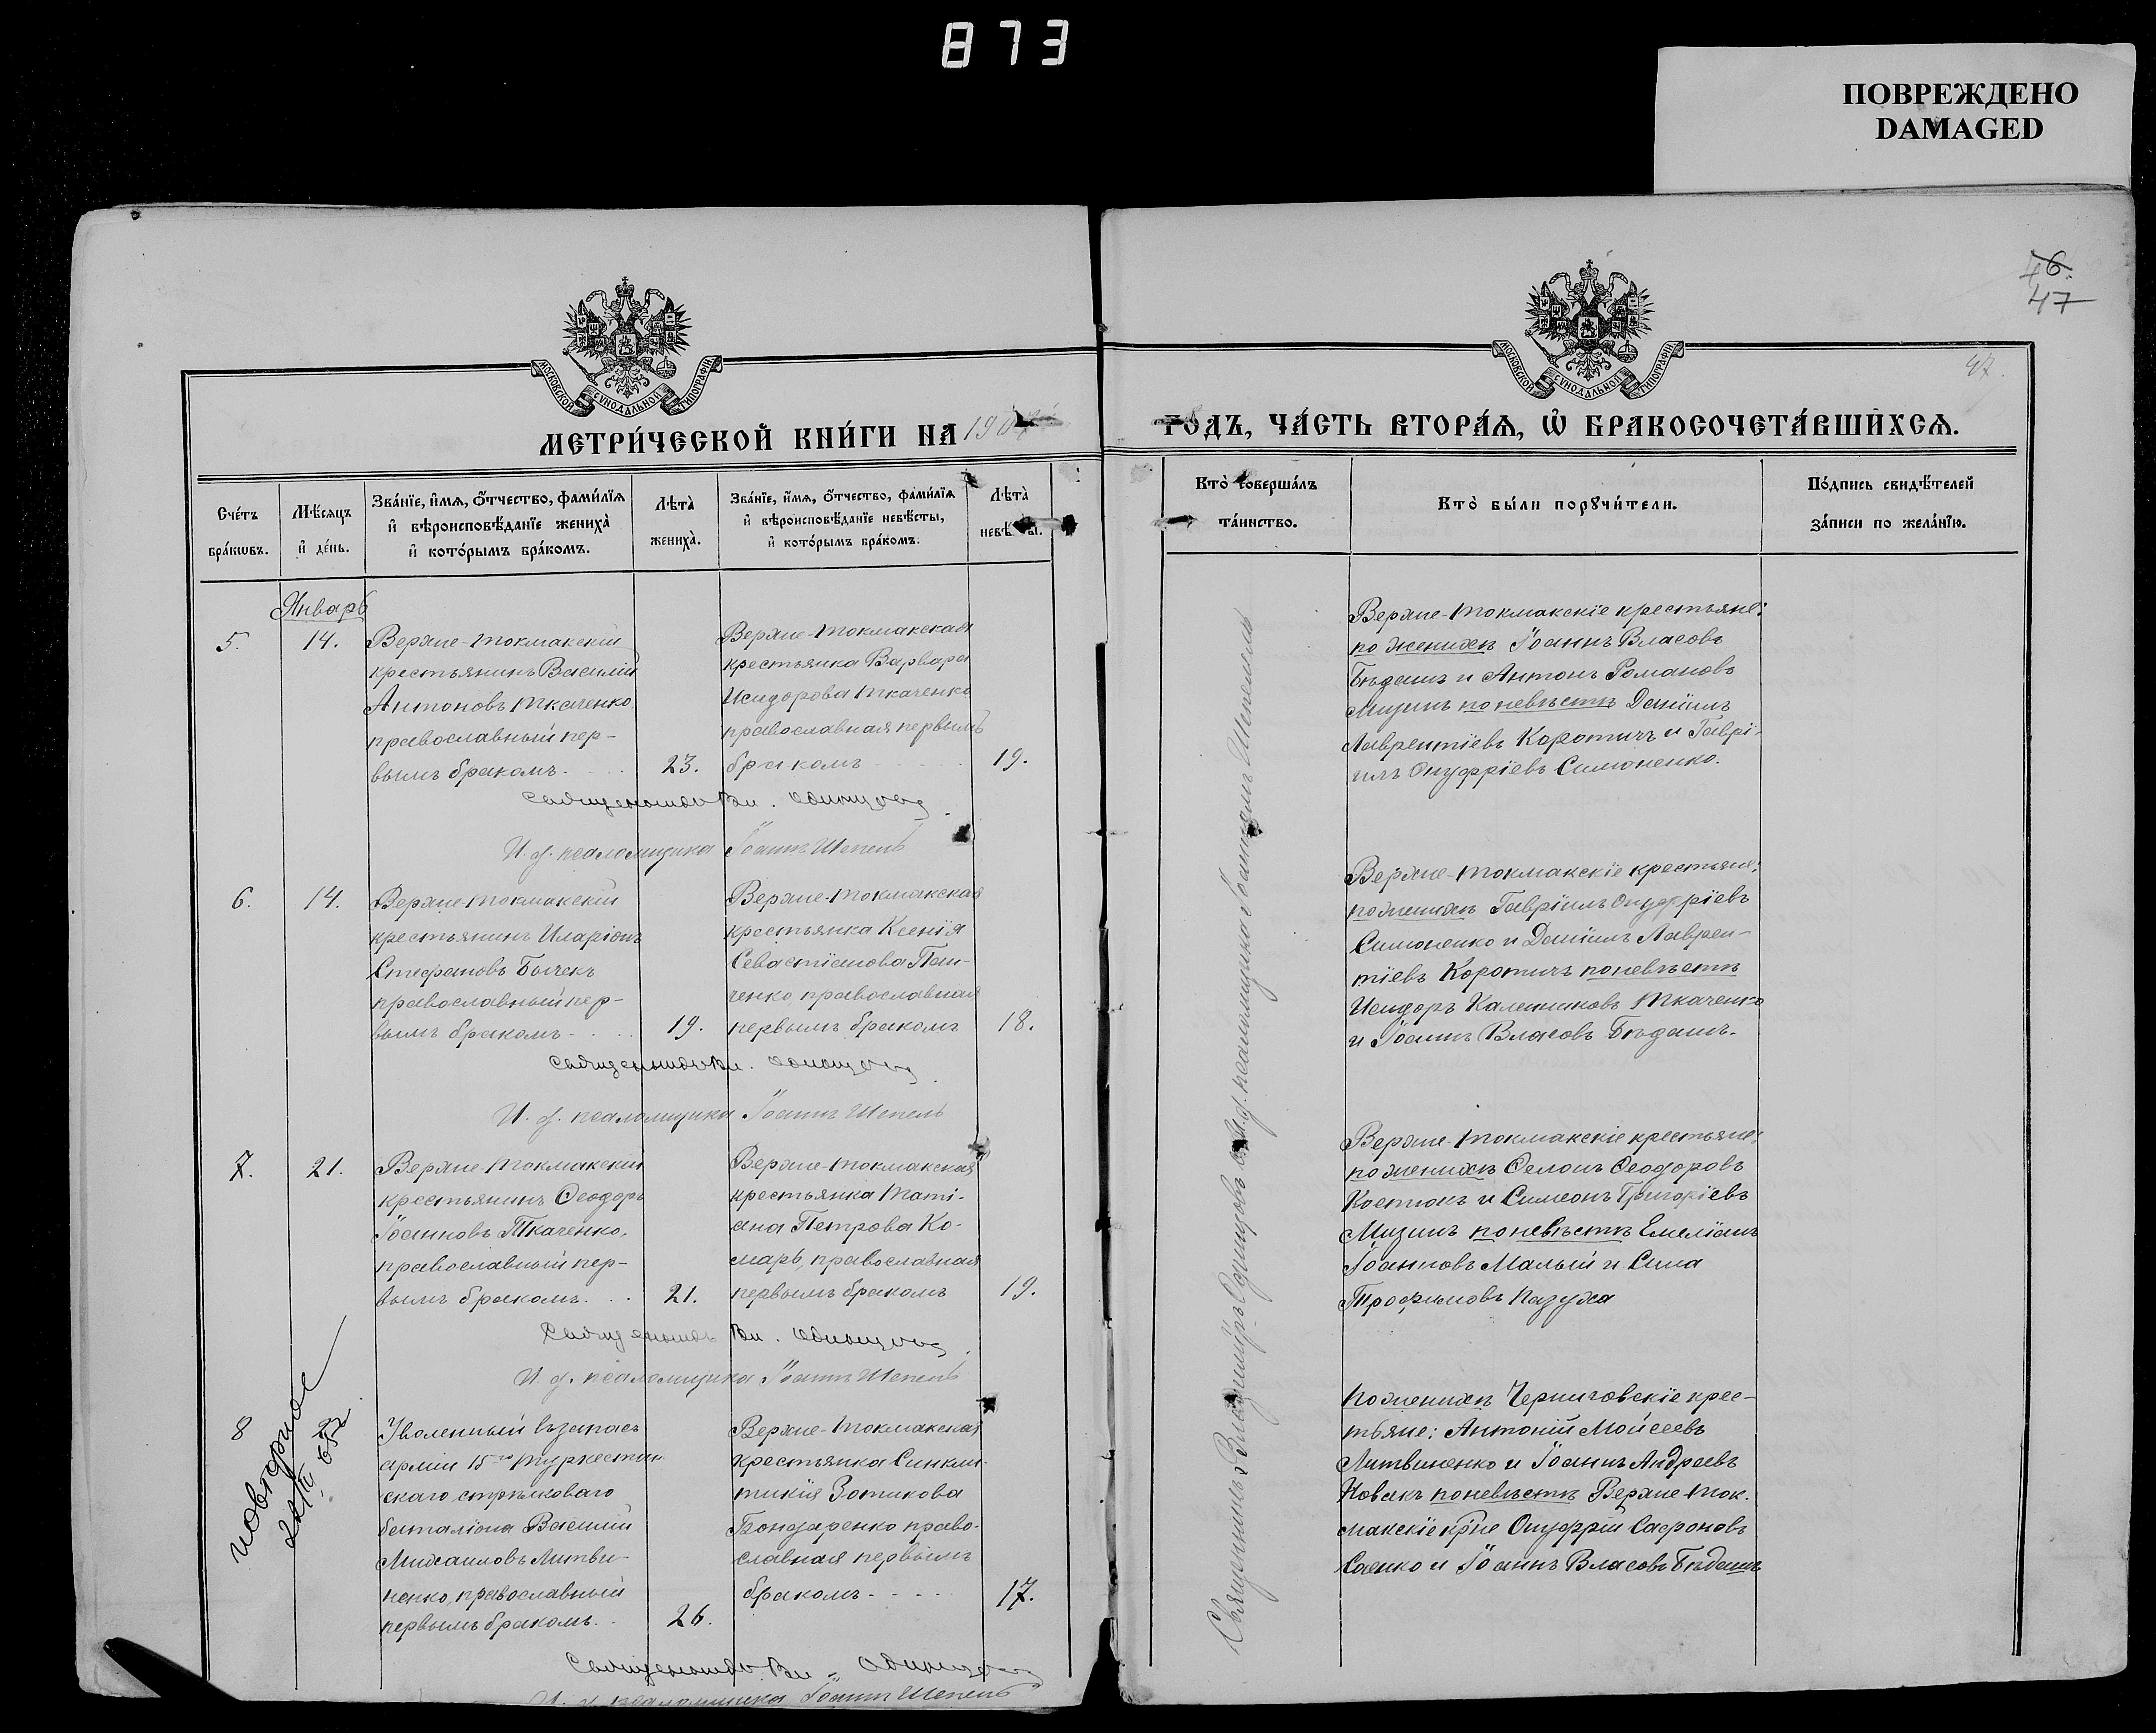 873
ПОВРЕЖДЕНО
DAMAGED
46.
47
47.
МОСКОВСКОЙ СѴНОДАЛЬНОЙ ТИПОГРАФІИ
МОСКОВСКОЙ СѴНОДАЛЬНОЙ ТИПОГРАФІИ
МЕТРИ́ЧЕСКОЙ КНИ́ГИ НА 190
ГОДЪ, ЧА́СТЬ ВТОРА́Ѧ, Ѽ БРАКОСОЧЕТА́ВШИХСѦ.
Сче́тъ бра́кѡвъ.
Мѣ́сѧцъ и҆ де́нь.
Зва́нїе, и҆́мѧ, ѻ҆́тчество, фами́лїѧ и҆ вѣроисповѣ́данїе жениха̀ и҆ кото́рымъ бра́комъ.
Лѣта̀ жениха̀.
Зва́нїе, и҆́мѧ, ѻ҆́тчество, фами́лїѧ и҆ вѣроисповѣ́данїе невѣ́сты, и҆ кото́рымъ бра́комъ.
Лѣта̀ невѣ́сты.
Кто̀ соверша́лъ та́инство.
Кто̀ бы́ли порꙋчи́тели.
По́дпись свидѣ́телей за́писи по жела́нїю.
Январь
5.
14.
Верхне-Токмакскій
крестьянинъ Василій
Антоновъ Ткаченко
православный пер-
вымъ бракомъ.
23.
Верхне-Токмакская
крестьянка Варвара
Исидорова Ткаченко
православная первымъ
бракомъ
19.
Верхне-Токмакскіе крестьяне:
по женихѣ Іоаннъ Власовъ
Бѣданъ и Антонъ Романовъ
Мизинъ по невѣстѣ Даніилъ
Лаврентіевъ Коротичъ и Гаврі-
илъ Онуфріевъ Симоненко.
Священникъ Вл. Одинцовъ
И. д. псаломщика Іоаннъ Шепель
6.
14.
Верхне-Токмакскій
крестьянинъ Иларіонъ
Стефановъ Бычекъ
православный пер-
вымъ бракомъ
19.
Верхне-Токмакская
крестьянка Ксенія
Севастіанова Пан-
ченко, православная
первымъ бракомъ
18.
Верхне-Токмакскіе крестьяне:
по женихѣ Гавріилъ Онуфріевъ
Симоненко и Даніилъ Лаврен-
тіевъ Коротичъ по невѣстѣ
Исидоръ Калениковъ Ткаченко
и Іоаннъ Власовъ Бѣданъ.
Священникъ Вл. Одинцовъ
И. д. псаломщика Іоаннъ Шепель
7.
21.
Верхне-Токмакскій
крестьянинъ Ѳеодоръ
Іоанновъ Ткаченко,
православный пер-
вымъ бракомъ.
21.
Верхне-Токмакская
крестьянка Таті-
ана Петрова Ко-
марь, православная
первымъ бракомъ
19.
Верхне-Токмакскіе крестьяне:
по женихѣ Ѳеодоровъ
Костюкъ и Симеонъ Григоріевъ
Мизинъ по невѣстѣ Емеліанъ
Іоанновъ Малый и Сила
Трофимовъ Пазуха
Священникъ Вл. Одинцовъ
И. д. псаломщика Іоаннъ Шепель
8
повторное
Уволенный въ запасъ
арміи 15го Туркестан
скаго стрѣлковаго
баталіона Василій
Михаиловъ Литви-
ненко, православный
первымъ бракомъ.
26.
Верхне-Токмакская
крестьянка Синкли-
тикія Зотикова
Бондаренко право-
славная первымъ
бракомъ
17.
По женихѣ Черниговскіе крес-
тьяне: Антоній Моисеевъ
Литвиненко и Іоаннъ Андреевъ
Новакъ по невѣстѣ Верхне-Ток-
макскіе кр-не Онуфрій Сафоновъ
Саенко и Іоаннъ Власовъ Бѣданъ
Священникъ Вл. Одинцовъ
И. д. псаломщика Іоаннъ Шепель
Священникъ Владиміръ Одинцовъ съ и. д. псаломщика Іоанномъ Шепелемъ